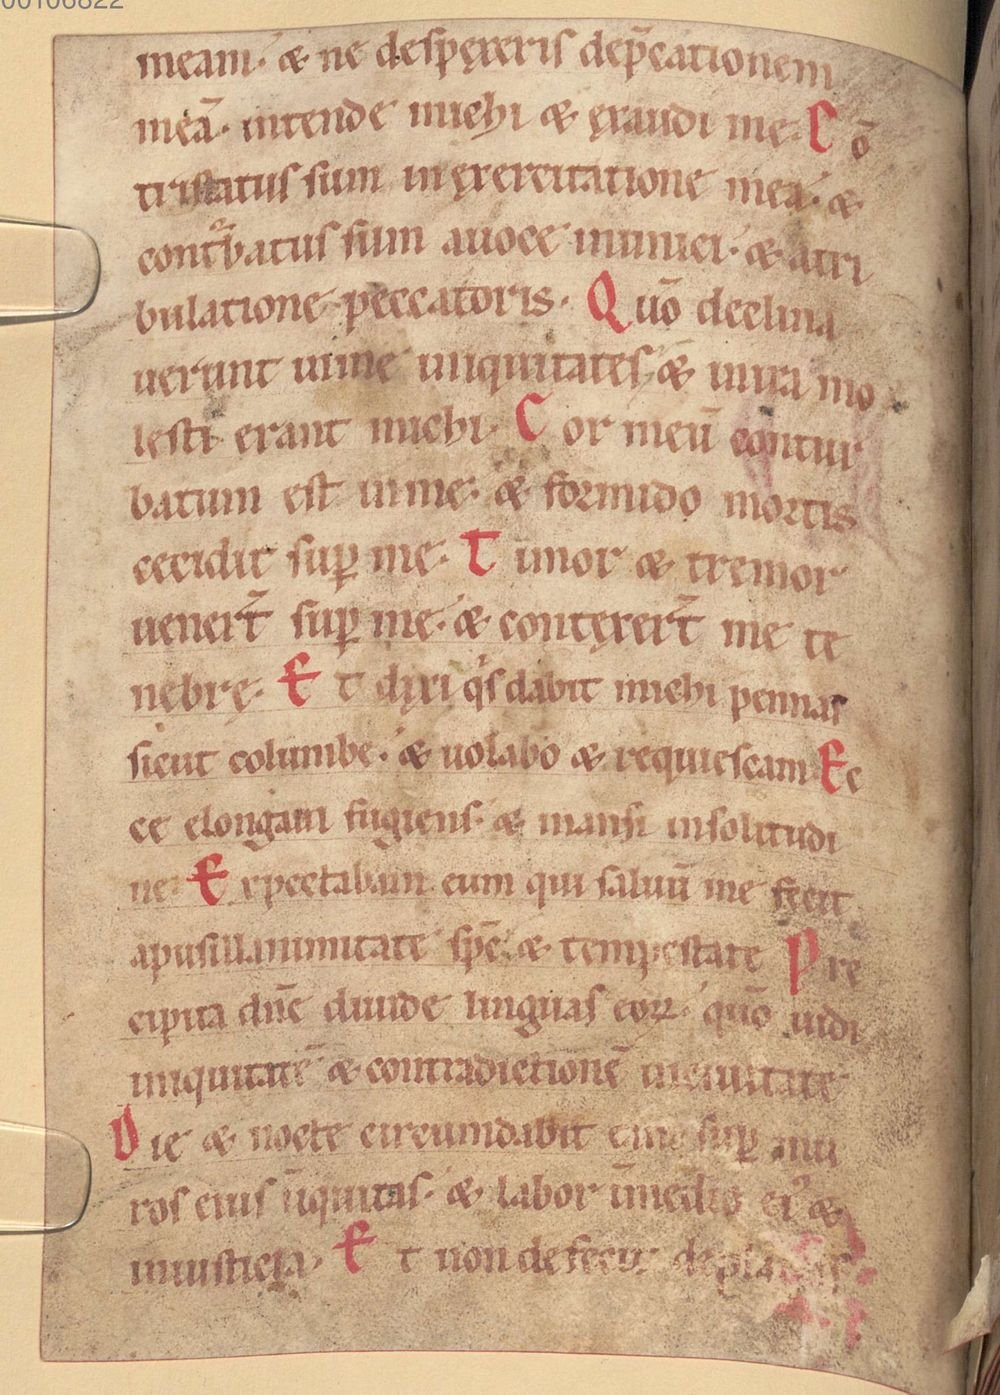 00106822
meam· & ne despexeris dep̄cationem
meā· intende michi & exaudi me· Cō
tristatus sum in exercitatione mea· &
contᵃbatus sum a uoce inimici· & a tri
bulatione peccatoris· Quō declina
uerunt in me iniquitates & in ira mo
lesti erant michi· Cor meū contur
batum est in me· & formido mortis
cecidit sup me· Timor & tremor
uenert̄ sup me· & contexert̄ me te
nebrę· Et dixi qⁱs dabit michi pennas
sicut columbe· & uolabo & requiescam Ec
ce elongaui fugiens· & mansi in solitudi
ne Expectabam eum qui saluū me fecit
a pusillanimitate sp̄c & tempestate Pre
cipita dn̄e diuide linguas eoꝝ· quō uidi
iniquitatē & contradictionē in ciuitate·
Die & nocte circumdabit sup mu
ros eius īiquitas· & labor ī medio eiꝰ &
iniusticia· Et non defecit de plateis